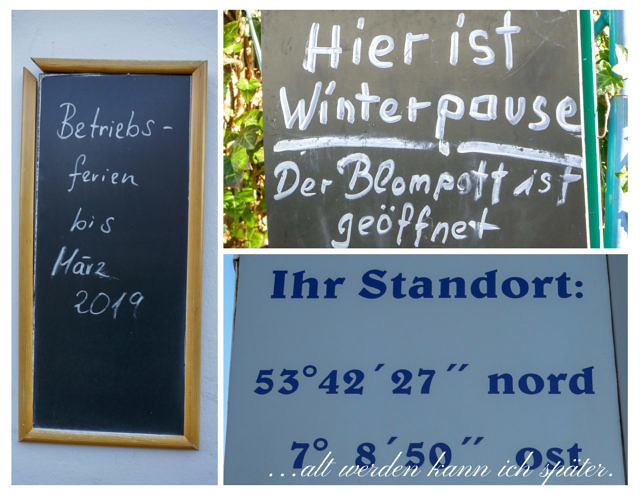 Betriebs-
ferien
bis
März
2019
Hier ist
Winterpause
Der Blompott ist
geöffnet
Ihr Standort:
53°42´27´´ nord
7° 8´50´´ ost
...alt werden kann ich später.